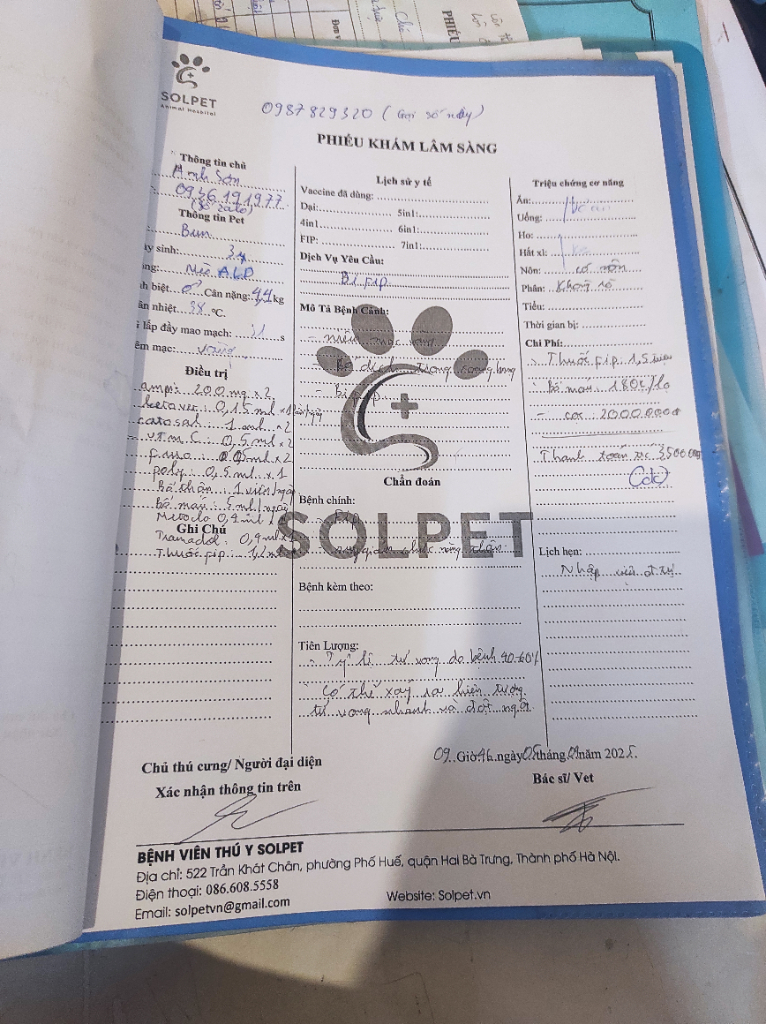 SOLPET
Animal Hospital
0987829320 (Gọi số này)
PHIẾU KHÁM LÂM SÀNG
Thông tin chủ
Anh Sơn
0936.191977
(Số zalo)
Thông tin Pet
Bum
ày sinh:
Mèo ALD
h biệt ♂ Cân nặng: 4,4 kg
ân nhiệt 38 °C.
lấp đầy mao mạch: s
êm mạc: vàng
Điều trị
ampi: 200 mg x 2
0,15 ml
catosal 1 ml x 2
vtm C: 0,5 ml x 2
x 2
poly: 0,5 ml x 1
Bổ thận: 1 viên/ngày
Bổ máu: 5 ml/ngày
Metoclo 0,9 ml
Ghi Chú
Tramadol: 0,9 ml
Thuốc fip:
Lịch sử y tế
Vaccine đã dùng:
Dại: 5in1:
4in1: 6in1:
FIP: 7in1:
Dịch Vụ Yêu Cầu:
Bị fip
Mô Tả Bệnh Cảnh:
- niêm mạc vàng
Có dịch trong xoang bụng
- Bị fip
Chẩn đoán
Bệnh chính:
SOLPET
suy giảm chức năng thận
Bệnh kèm theo:
Tiên Lượng:
- Tỷ lệ tử vong do bệnh 40-60%
Có thể xảy ra hiện tượng
tử vong nhanh và đột ngột
Triệu chứng cơ năng
Ăn:
Uống:
Ho:
Hắt xì:
Nôn: có nôn
Phân: không rõ
Tiểu:
Thời gian bị:
Chi Phí:
- Thuốc fip 1,5
- Bổ máu 180k/lọ
- cọc 2000.000đ
Thanh toán
(ck)
Lịch hẹn:
Nhập viện đ.trị
09 Giờ 46 ngày 05 tháng năm 2025.
Chủ thú cưng/ Người đại diện
Xác nhận thông tin trên
Bác sĩ/ Vet
BỆNH VIÊN THÚ Y SOLPET
Địa chỉ: 522 Trần Khát Chân, phường Phố Huế, quận Hai Bà Trưng, Thành phố Hà Nội.
Điện thoại: 086.608.5558
Website: Solpet.vn
Email: solpetvn@gmail.com